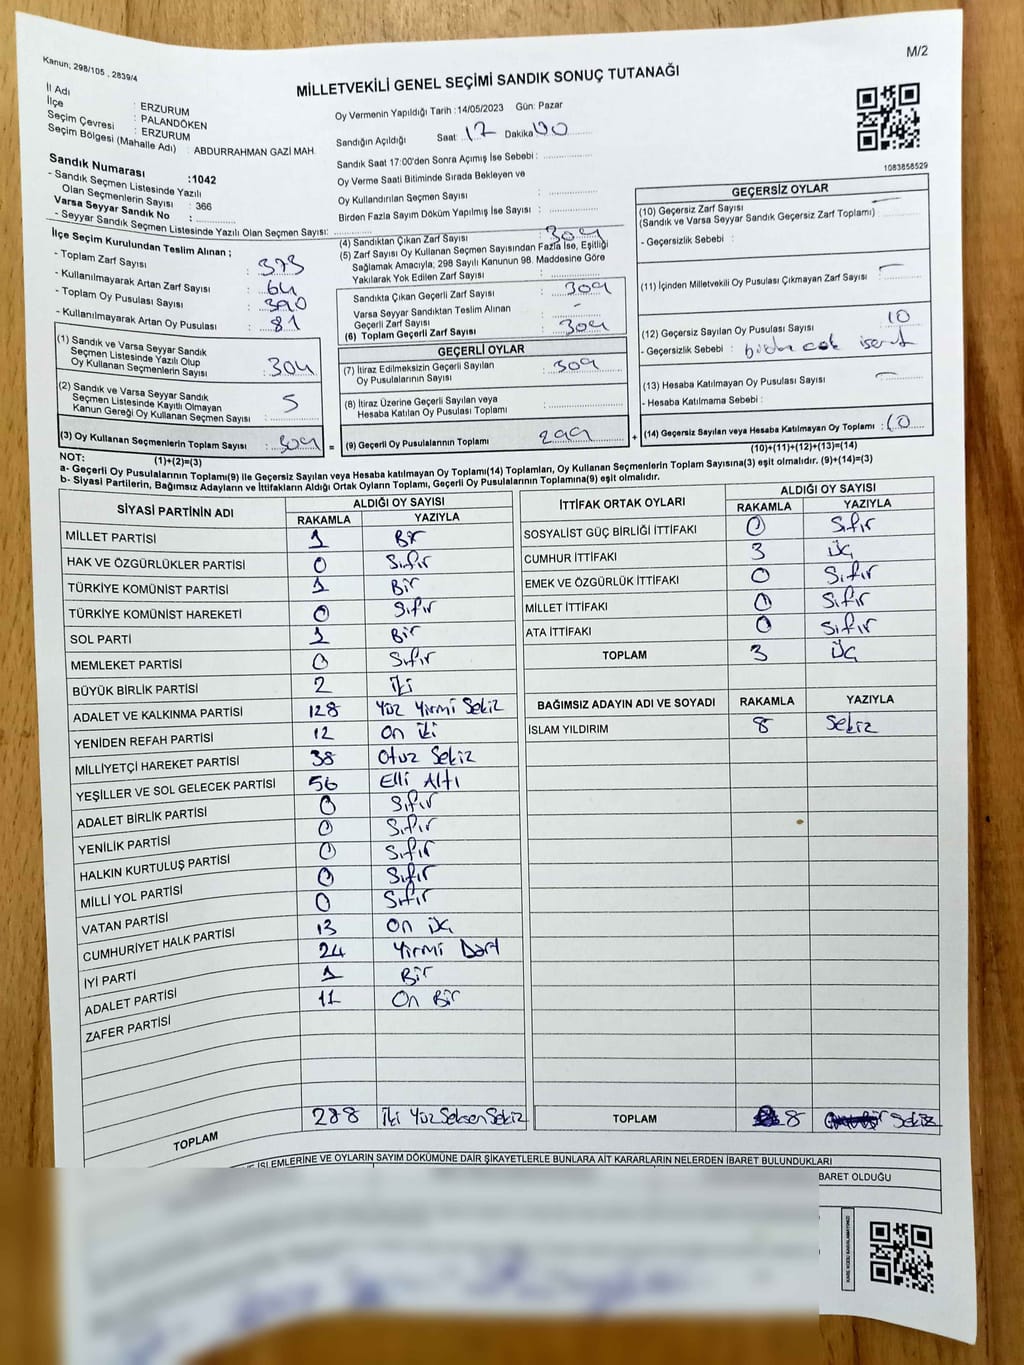 Kanun, 298/105 , 2839/4
M/2
MİLLETVEKİLİ GENEL SEÇİMİ SANDIK SONUÇ TUTANAĞI
İl Adı : ERZURUM
İlçe : PALANDÖKEN
Seçim Çevresi : ERZURUM
Seçim Bölgesi (Mahalle Adı) : ABDURRAHMAN GAZİ MAH.
Sandık Numarası :1042
- Sandık Seçmen Listesinde Yazılı
Olan Seçmenlerin Sayısı : 366
Varsa Seyyar Sandık No :
- Seyyar Sandık Seçmen Listesinde Yazılı Olan Seçmen Sayısı:
Oy Vermenin Yapıldığı Tarih :14/05/2023 Gün: Pazar
Sandığın Açıldığı Saat 17 Dakika 00
Sandık Saat 17:00'den Sonra Açımış İse Sebebi :
Oy Verme Saati Bitiminde Sırada Bekleyen ve
Oy Kullandırılan Seçmen Sayısı :
Birden Fazla Sayım Döküm Yapılmış İse Sayısı :
1083858529
İlçe Seçim Kurulundan Teslim Alınan ;
- Toplam Zarf Sayısı : 373
- Kullanılmayarak Artan Zarf Sayısı : 64
- Toplam Oy Pusulası Sayısı : 390
- Kullanılmayarak Artan Oy Pusulası : 81
(1) Sandık ve Varsa Seyyar Sandık
Seçmen Listesinde Yazılı Olup
Oy Kullanan Seçmenlerin Sayısı : 304
(2) Sandık ve Varsa Seyyar Sandık
Seçmen Listesinde Kayıtlı Olmayan
Kanun Gereği Oy Kullanan Seçmen Sayısı : 5
(3) Oy Kullanan Seçmenlerin Toplam Sayısı : 309 =
(1)+(2)=(3)
(4) Sandıktan Çıkan Zarf Sayısı : 309
(5) Zarf Sayısı Oy Kullanan Seçmen Sayısından Fazla İse, Eşitliği
Sağlamak Amacıyla; 298 Sayılı Kanunun 98. Maddesine Göre
Yakılarak Yok Edilen Zarf Sayısı :
Sandıkta Çıkan Geçerli Zarf Sayısı : 309
Varsa Seyyar Sandıktan Teslim Alınan
Geçerli Zarf Sayısı : -
(6) Toplam Geçerli Zarf Sayısı : 309
GEÇERLİ OYLAR
(7) İtiraz Edilmeksizin Geçerli Sayılan
Oy Pusulalarının Sayısı : 309
(8) İtiraz Üzerine Geçerli Sayılan veya
Hesaba Katılan Oy Pusulası Toplamı :
(9) Geçerli Oy Pusulalarının Toplamı : 299 +
GEÇERSİZ OYLAR
(10) Geçersiz Zarf Sayısı
(Sandık ve Varsa Seyyar Sandık Geçersiz Zarf Toplamı) : -
- Geçersizlik Sebebi :
(11) İçinden Milletvekili Oy Pusulası Çıkmayan Zarf Sayısı : -
(12) Geçersiz Sayılan Oy Pusulası Sayısı : 10
- Geçersizlik Sebebi : birden çok işaret
(13) Hesaba Katılmayan Oy Pusulası Sayısı : -
- Hesaba Katılmama Sebebi :
(14) Geçersiz Sayılan veya Hesaba Katılmayan Oy Toplamı : 10
(10)+(11)+(12)+(13)=(14)
NOT:
a- Geçerli Oy Pusulalarının Toplamı(9) ile Geçersiz Sayılan veya Hesaba katılmayan Oy Toplamı(14) Toplamları, Oy Kullanan Seçmenlerin Toplam Sayısına(3) eşit olmalıdır. (9)+(14)=(3)
b- Siyasi Partilerin, Bağımsız Adayların ve İttifakların Aldığı Ortak Oyların Toplamı, Geçerli Oy Pusulalarının Toplamına(9) eşit olmalıdır.
SİYASİ PARTİNİN ADI ALDIĞI OY SAYISI
RAKAMLA YAZIYLA
MİLLET PARTİSİ 1 Bir
HAK VE ÖZGÜRLÜKLER PARTİSİ 0 Sıfır
TÜRKİYE KOMÜNİST PARTİSİ 1 Bir
TÜRKİYE KOMÜNİST HAREKETİ 0 Sıfır
SOL PARTİ 1 Bir
MEMLEKET PARTİSİ 0 Sıfır
BÜYÜK BİRLİK PARTİSİ 2 İki
ADALET VE KALKINMA PARTİSİ 128 Yüz Yirmi Sekiz
YENİDEN REFAH PARTİSİ 12 On iki
MİLLİYETÇİ HAREKET PARTİSİ 38 Otuz Sekiz
YEŞİLLER VE SOL GELECEK PARTİSİ 56 Elli Altı
ADALET BİRLİK PARTİSİ 0 Sıfır
YENİLİK PARTİSİ 0 Sıfır
HALKIN KURTULUŞ PARTİSİ 0 Sıfır
MİLLİ YOL PARTİSİ 0 Sıfır
VATAN PARTİSİ 0 Sıfır
CUMHURİYET HALK PARTİSİ 13 On üç
İYİ PARTİ 24 Yirmi Dört
ADALET PARTİSİ 1 Bir
ZAFER PARTİSİ 11 On Bir
TOPLAM 288 İki Yüz Seksen Sekiz
İTTİFAK ORTAK OYLARI ALDIĞI OY SAYISI
RAKAMLA YAZIYLA
SOSYALİST GÜÇ BİRLİĞİ İTTİFAKI 0 Sıfır
CUMHUR İTTİFAKI 3 üç
EMEK VE ÖZGÜRLÜK İTTİFAKI 0 Sıfır
MİLLET İTTİFAKI 0 Sıfır
ATA İTTİFAKI 0 Sıfır
TOPLAM 3 üç
BAĞIMSIZ ADAYIN ADI VE SOYADI RAKAMLA YAZIYLA
İSLAM YILDIRIM 8 Sekiz
TOPLAM 8 Sekiz
İŞLEMLERİNE VE OYLARIN SAYIM DÖKÜMÜNE DAİR ŞİKAYETLERLE BUNLARA AİT KARARLARIN NELERDEN İBARET BULUNDUKLARI
BARET OLDUĞU